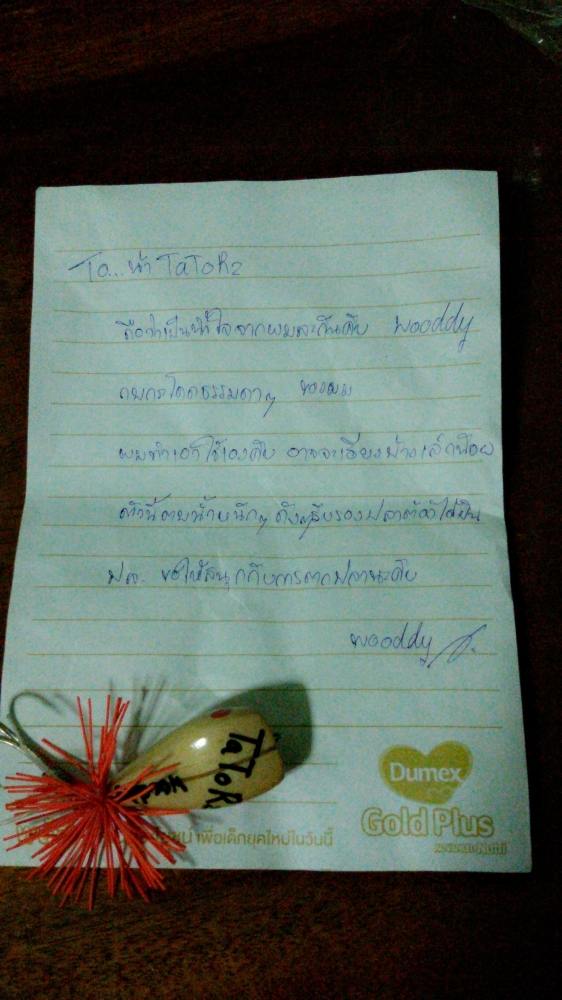 To... น้า TaToRz
ถือว่าเป็นน้ำใจจากผมละกันคับ wooddy
กบกระโดดธรรมดาๆ ของผม
ผมทำเอาไว้ใช้เองคับ อาจจะเอียงบ้างเล็กน้อย
ตัวนี้ตามน้ำหนักๆ ดึงๆ
ปล. ขอให้สนุกกับการตกปลานะคับ
wooddy
TaToR
Dumex
Gold Plus
เพื่อเด็กยุคใหม่ในวันนี้